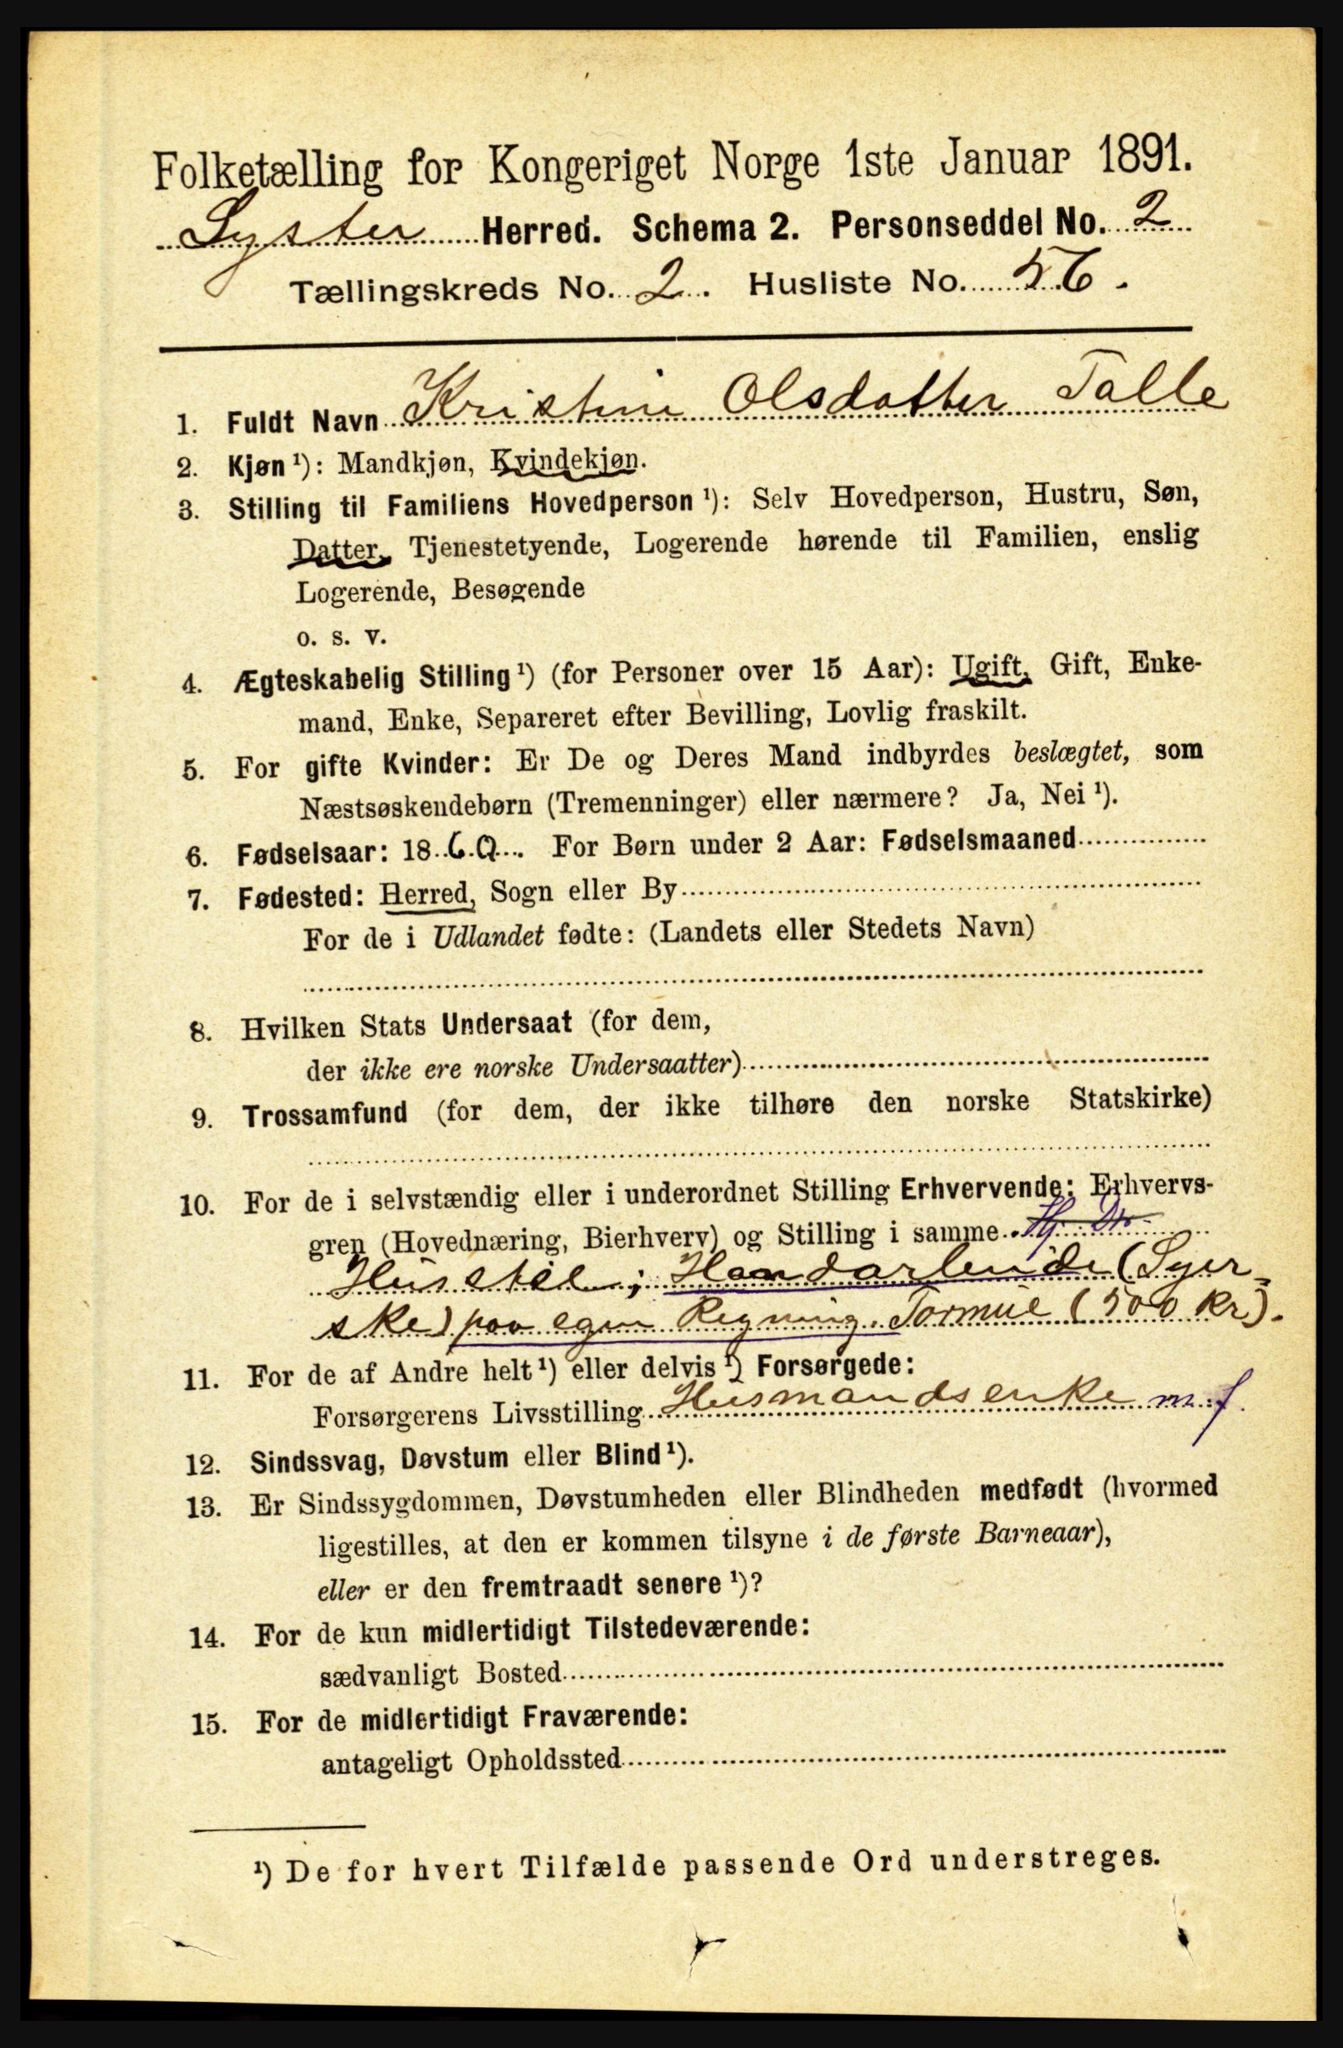 Folketælling for Kongeriget Norge 1ste Januar 1891.
Lyster Herred. Schema 2. Personseddel No. 2
Tællingskreds No. 2. Husliste No. 56.
1. Fuldt Navn Kristine Olsdatter Talle
2. Kjøn ¹): Mandkjøn, Kvindekjøn.
3. Stilling til Familiens Hovedperson ¹): Selv Hovedperson, Hustru, Søn,
Datter, Tjenestetyende, Logerende hørende til Familien, enslig
Logerende, Besøgende
o. s. v.
4. Ægteskabelig Stilling ¹) (for Personer over 15 Aar): Ugift, Gift, Enke-
mand, Enke, Separeret efter Bevilling, Lovlig fraskilt.
5. For gifte Kvinder: Er De og Deres Mand indbyrdes beslægtet, som
Næstsøskendebørn (Tremenninger) eller nærmere? Ja, Nei ¹).
6. Fødselsaar: 1860. For Børn under 2 Aar: Fødselsmaaned
7. Fødested: Herred, Sogn eller By
For de i Udlandet fødte: (Landets eller Stedets Navn)
8. Hvilken Stats Undersaat (for dem,
der ikke ere norske Undersaatter)
9. Trossamfund (for dem, der ikke tilhøre den norske Statskirke)
10. For de i selvstændig eller i underordnet Stilling Erhvervende: Erhvervs-
gren (Hovednæring, Bierhverv) og Stilling i samme.
Husstel; Haandarbeide (Syer-
ske) paa egen Regning. Formue (500 Kr).
11. For de af Andre helt ¹) eller delvis ¹) Forsørgede:
Forsørgerens Livsstilling Husmandsenke m. f.
12. Sindssvag, Døvstum eller Blind ¹).
13. Er Sindssygdommen, Døvstumheden eller Blindheden medfødt (hvormed
ligestilles, at den er kommen tilsyne i de første Barneaar),
eller er den fremtraadt senere ¹)?
14. For de kun midlertidigt Tilstedeværende:
sædvanligt Bosted
15. For de midlertidigt Fraværende:
antageligt Opholdssted
¹) De for hvert Tilfælde passende Ord understreges.